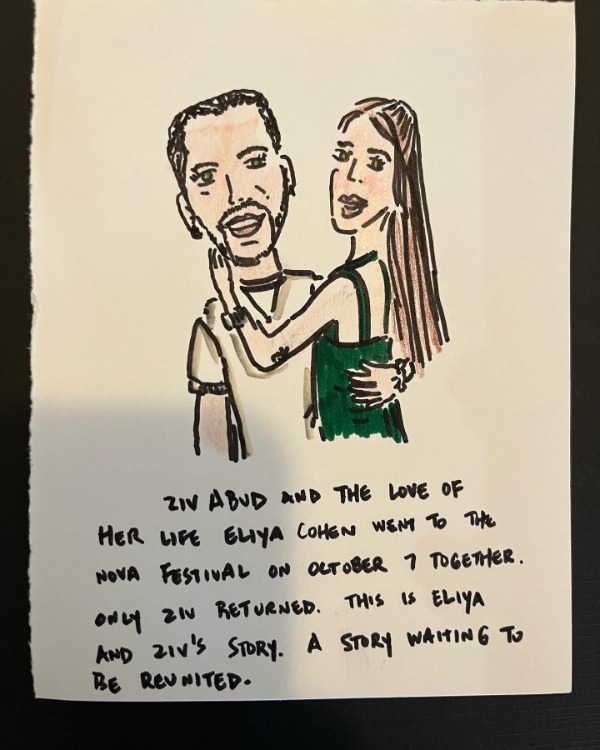 ZIV ABUD AND THE LOVE OF
HER LIFE ELIYA COHEN WENT TO THE
NOVA FESTIVAL ON OCTOBER 7 TOGETHER.
ONLY ZIV RETURNED. THIS IS ELIYA
AND ZIV'S STORY. A STORY WAITING TO
BE REUNITED.